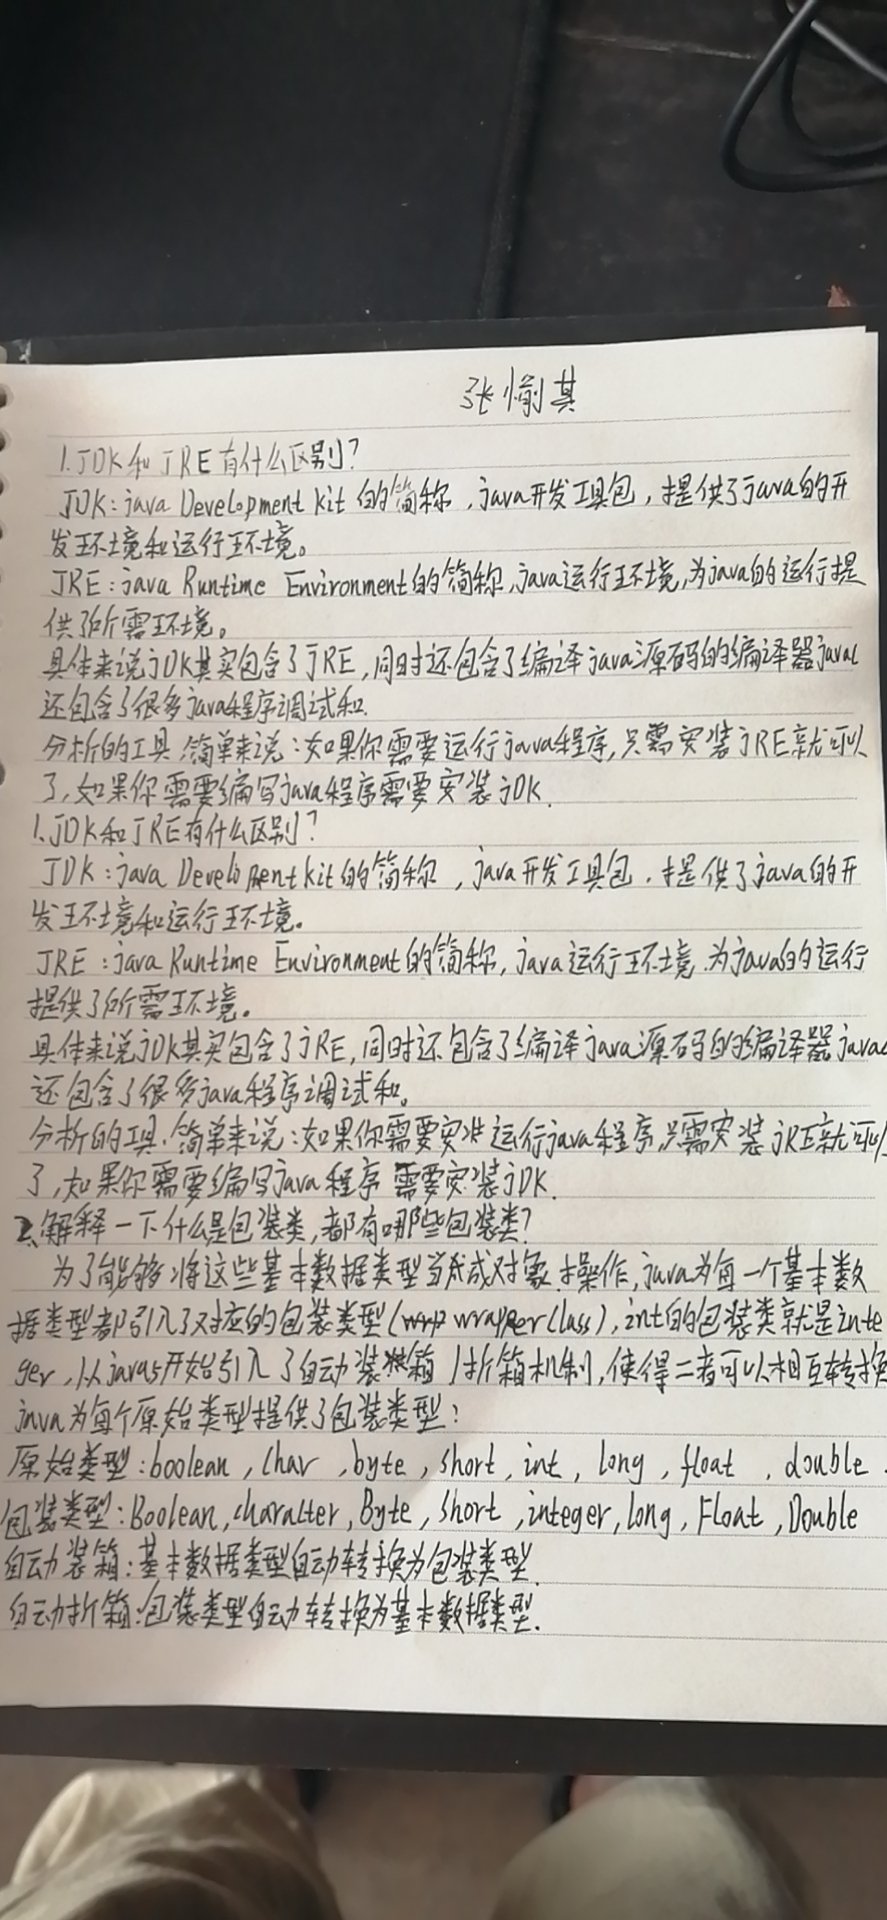 张愉其
1.JDK和JRE有什么区别?
JDK:java Development kit 的简称,java开发工具包,提供了java的开
发环境和运行环境。
JRE:java Runtime Environment的简称,java运行环境,为java的运行提
供了所需环境。
具体来说jDK其实包含了jRE,同时还包含了编译java源码的编译器javac
还包含了很多java程序调试和.
分析的工具,简单来说:如果你需要运行java程序,只需安装jRE就可以
了,如果你需要编写java程序需要安装jDK.
1.JDK和JRE有什么区别?
JDK:java Development kit的简称,java开发工具包.提供了java的开
发环境和运行环境。
JRE:java Runtime Environment的简称,java运行环境.为java的运行
提供了所需环境。
具体来说jDK其实包含了jRE,同时还包含了编译java源码的编译器javac
还包含了很多java程序调试和。
分析的工具.简单来说:如果你需要运行java程序,只需安装jRE就可以
了,如果你需要编写java程序需要安装jDK.
2、解释一下什么是包装类,都有哪些包装类?
为了能够将这些基本数据类型当成对象操作,java为每一个基本数
据类型都引入了对应的包装类型(wrapper class),int的包装类就是inte
ger,从java5开始引入了自动装箱/折箱机制,使得二者可以相互转换
java为每个原始类型提供了包装类型:
原始类型:boolean,char,byte,short,int,long,float,double.
包装类型:Boolean,character,Byte,short,integer,Long,Float,Double
自动装箱:基本数据类型自动转换为包装类型.
自动折箱:包装类型自动转换为基本数据类型.